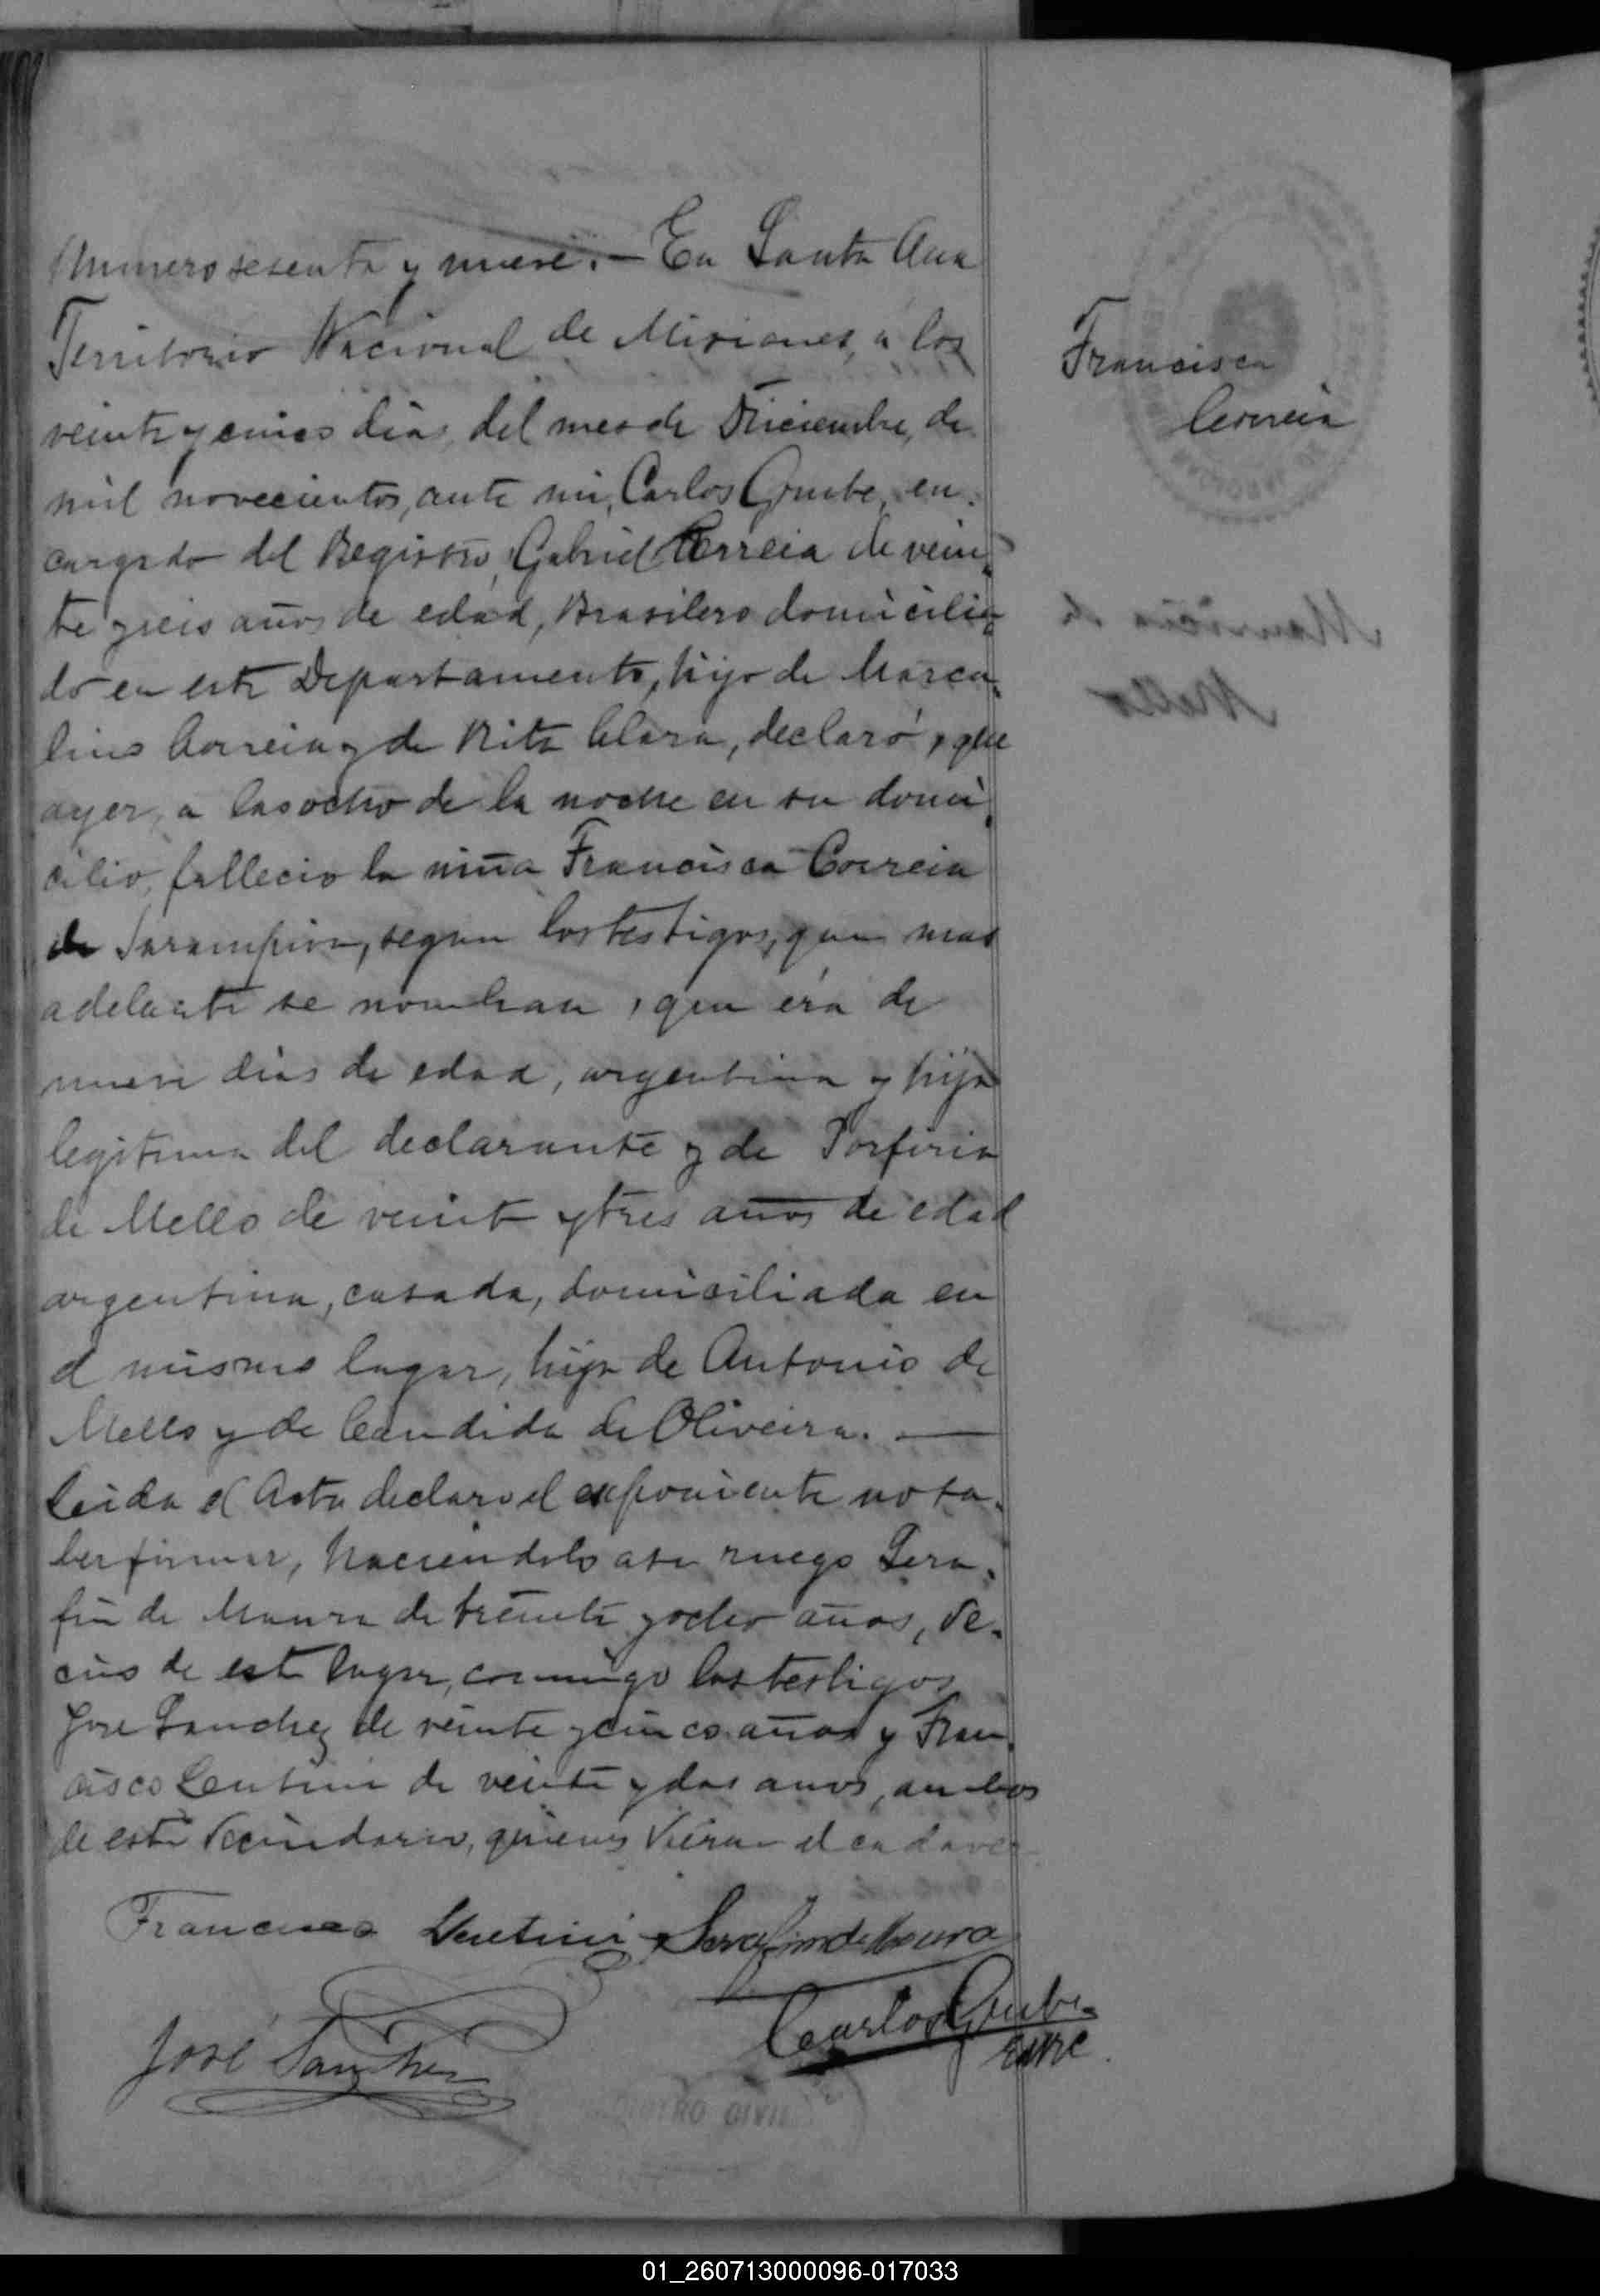 Numero sesenta y nueve.— En Santa Ana
Territorio Nacional de Misiones, a los
veinte y cinco dias, del mes de Diciembre, de
mil novecientos, ante mi, Carlos Grube, en-
cargado del Registro, Gabriel Correia de vein-
te y seis años de edad, Brasilero domicilia-
do en este Departamento, hijo de Marca-
lino Correia y de Rita Clara, declaró, que
ayer, a las ocho de la noche en su domi-
cilio, fallecio la niña Francisca Correia
de Sarampion, segun los testigos, que mas
adelante se nombran, que era de
nueve dias de edad, argentina y hija
legitima del declarante y de Porfiria
de Mello de veinte y tres años de edad
argentina, casada, domiciliada en
el mismo lugar, hija de Antonio de
Mello y de Candida de Oliveira. —
Leida el Acta declaro el exponiente no sa-
ber firmar, haciendolo a su ruego Sera-
fin de Moura de treinta y ocho años, ve-
cino de este lugar, conmigo los testigos
Jose Sanchez de veinte y cinco años y Fran-
cisco Lentini de veinte y dos anos, ambos
de este Vecindario, quienes Vieran el cadaver
Francisco Lentini Serafim de Moura
José Sanchez
Carlos Grube
REGISTRO CIVIL
Francisca
Correia
01_260713000096-017033